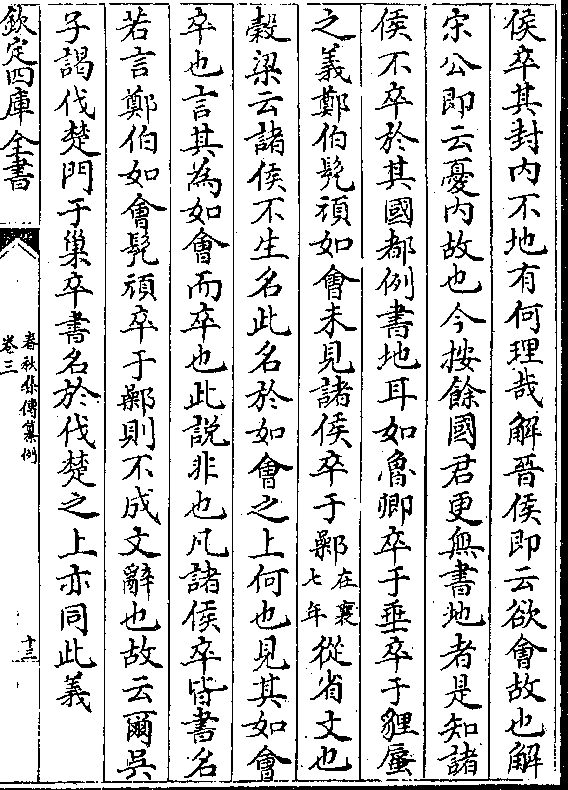 侯卒其封内不地有何理哉解晉侯即云欲會故也解
宋公即云憂内故也今按餘國君更無書地者是知諸
侯不卒於其國都例書地耳如魯卿卒于垂卒于貍蜃
之義鄭伯髠頑如會未見諸侯卒于鄵在襄七年從省文也
穀梁云諸侯不生名此名於如會之上何也見其如會
卒也言其為如會而卒也此説非也凡諸侯卒皆書名
若言鄭伯如會髠頑卒于鄵則不成文辭也故云爾吳
子謁伐楚門于巢卒書名於伐楚之上亦同此義
欽定四庫全書
春秋集傳纂例
卷三
十三